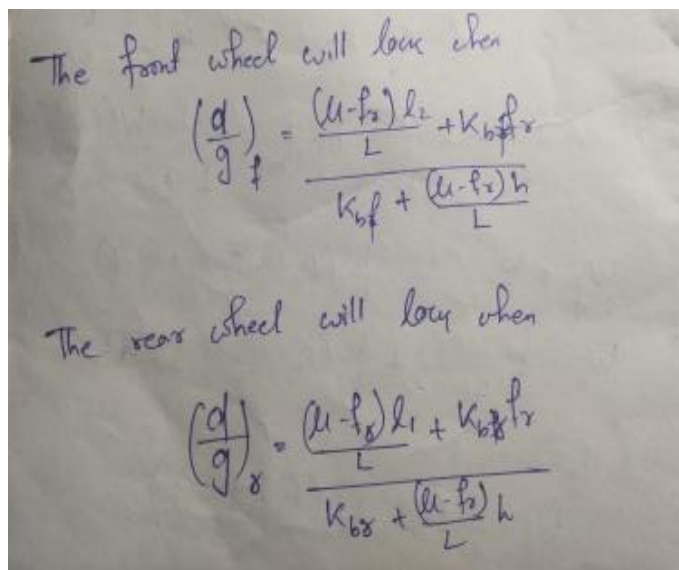 The front wheel will lock when
(d/g)f = ((μ-fr) l2 / L + Kbf fr) / (Kbf + (μ-fr) h / L)
The rear wheel will lock when
(d/g)r = ((μ-fr) l1 / L + Kbr fr) / (Kbr + (μ-fr) h / L)